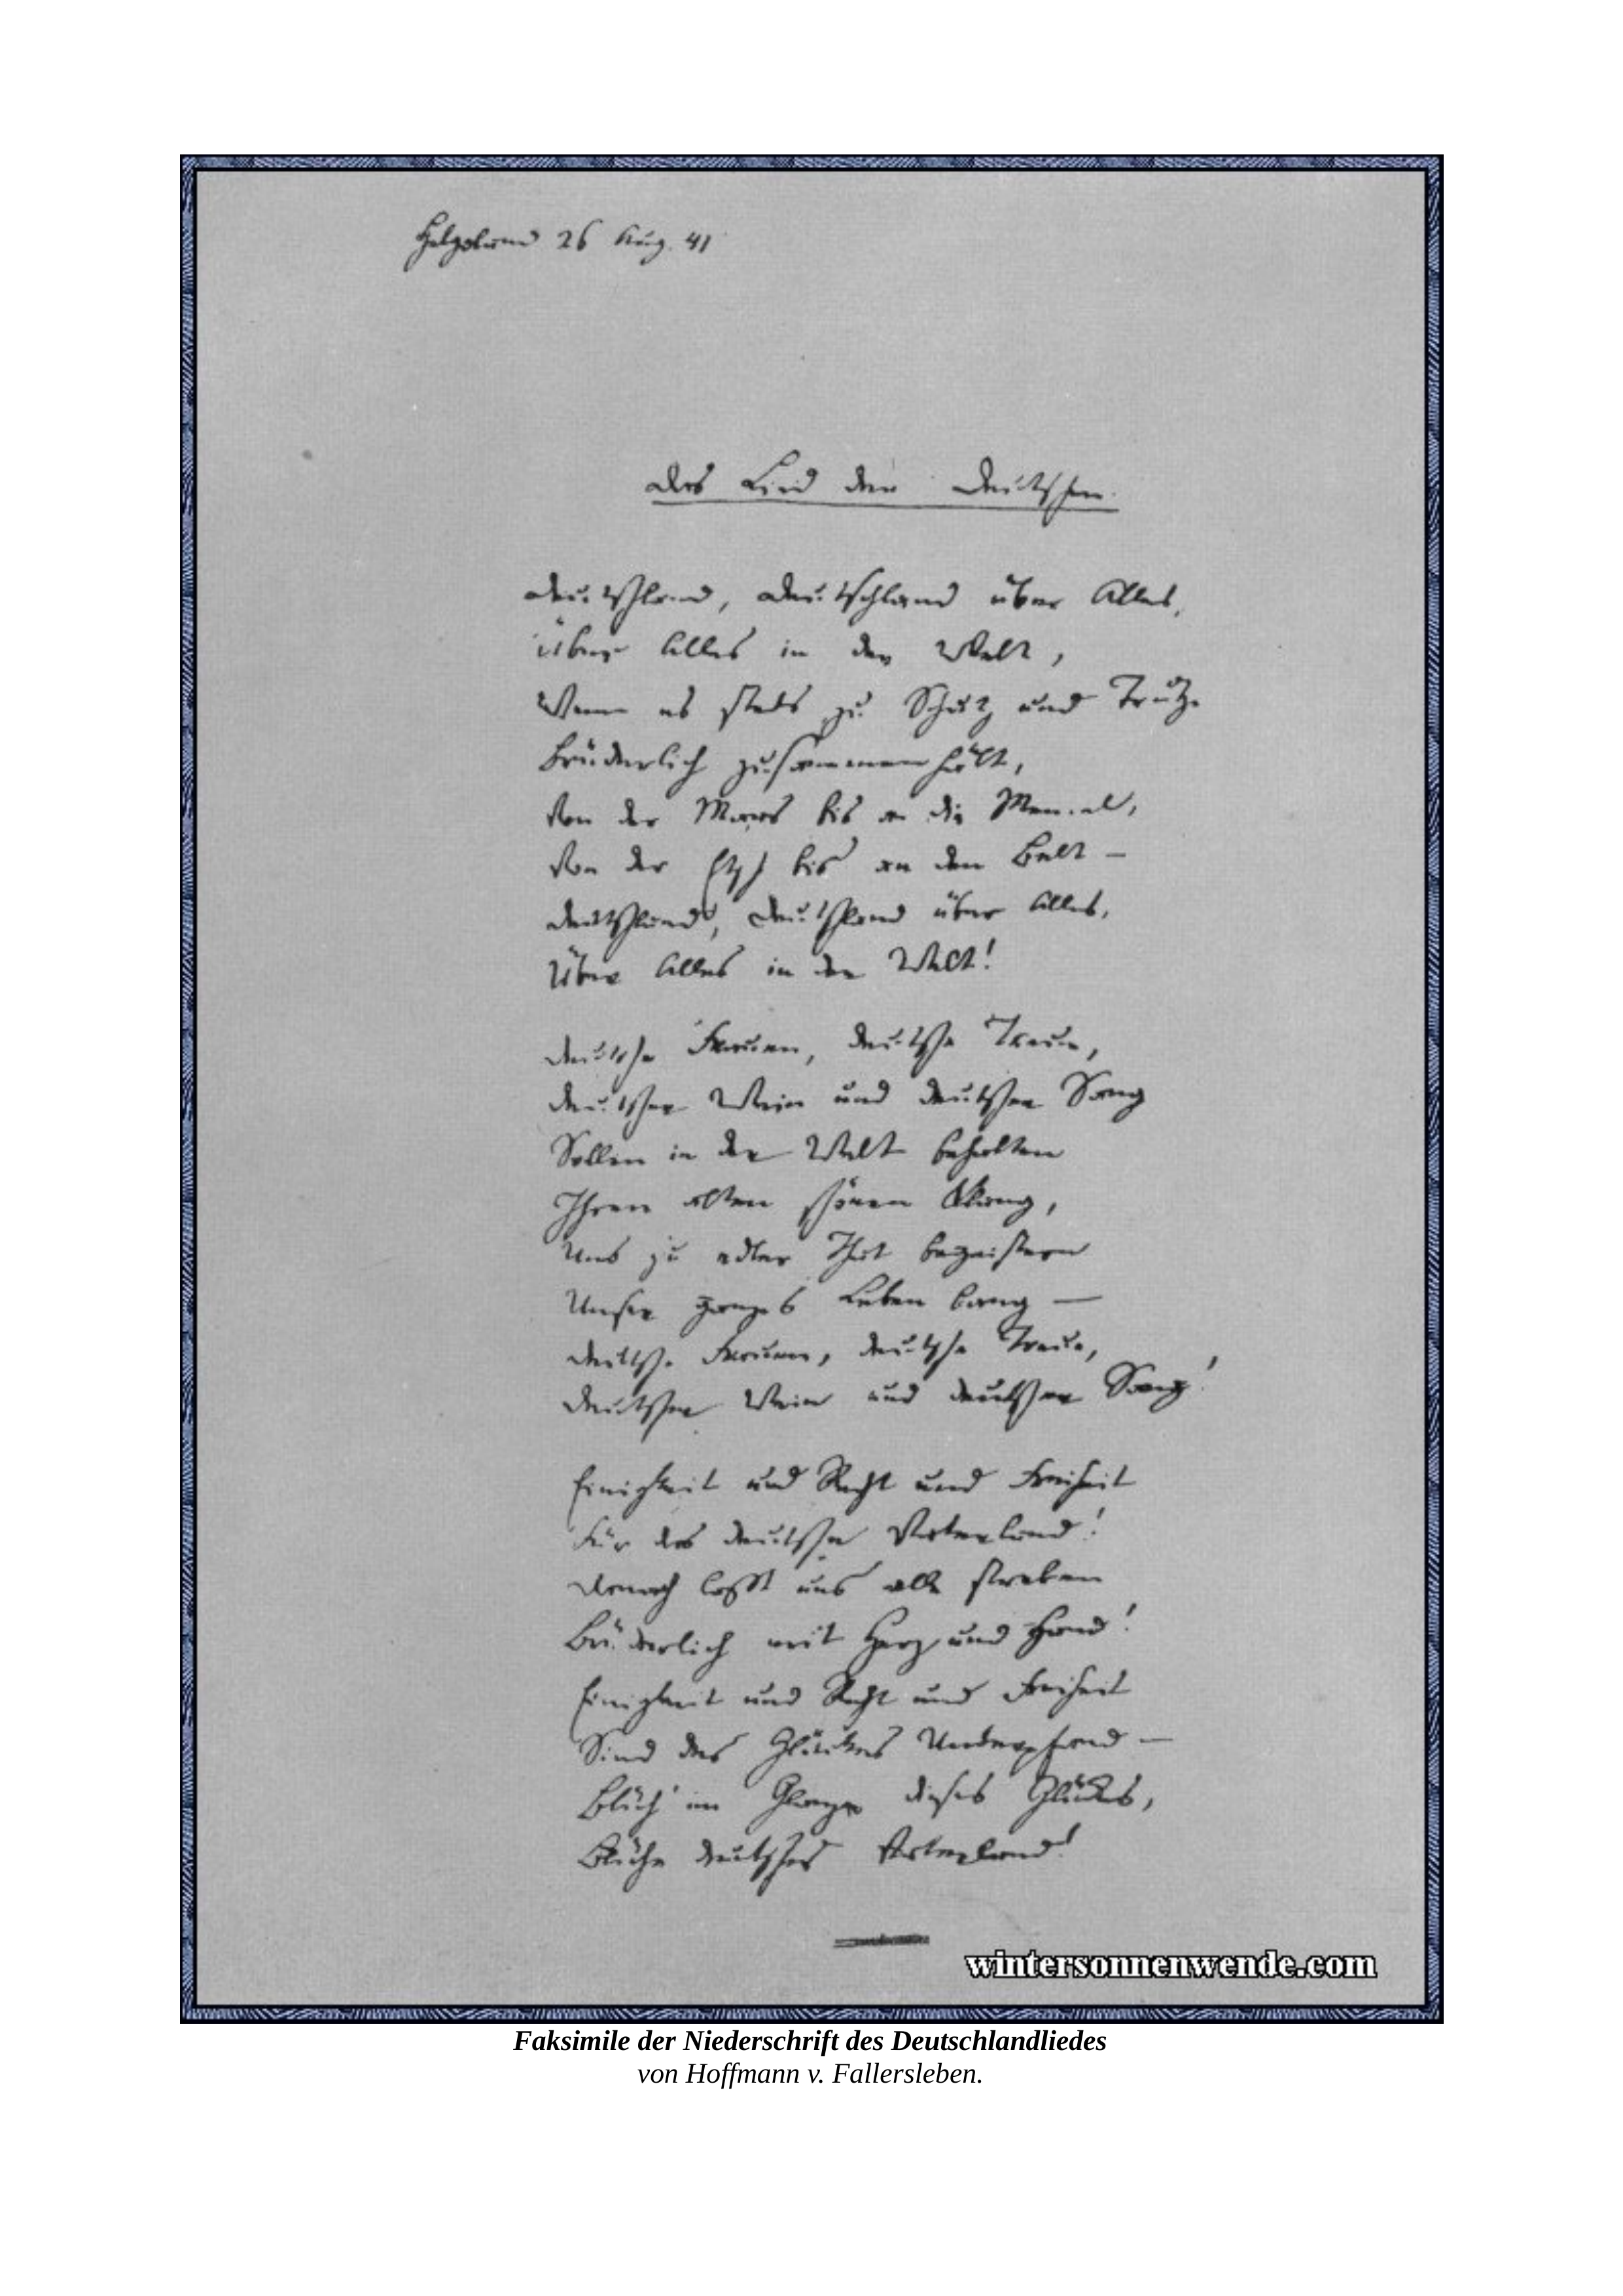 Helgoland 26 Aug. 41
Das Lied der Deutschen.
Deutschland, Deutschland über Alles,
Über Alles in der Welt,
Wenn es stets zu Schutz und Trutze
Brüderlich zusammenhält,
Von der Maas bis an die Memel,
Von der Etsch bis an den Belt –
Deutschland, Deutschland über Alles,
Über Alles in der Welt!
Deutsche Frauen, deutsche Treue,
Deutscher Wein und deutscher Sang
Sollen in der Welt behalten
Ihren alten schönen Klang,
Uns zu edler That begeistern
Unser ganzes Leben lang –
Deutsche Frauen, deutsche Treue,
Deutscher Wein und deutscher Sang!
Einigkeit und Recht und Freiheit
Für das deutsche Vaterland!
Danach lasst uns alle streben
Brüderlich mit Herz und Hand!
Einigkeit und Recht und Freiheit
Sind des Glückes Unterpfand –
Blüh' im Glanze dieses Glückes,
Blühe deutsches Vaterland!
wintersonnenwende.com
Faksimile der Niederschrift des Deutschlandliedes
von Hoffmann v. Fallersleben.